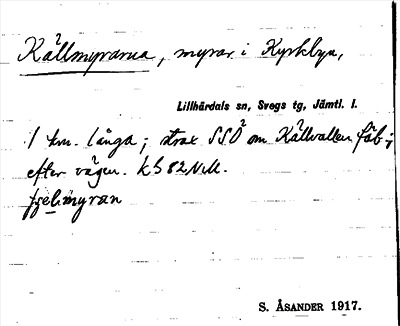 Källmyrarna, myrar i Kyrkbyn,
Lillhärdals sn, Svegs tg, Jämtl. l.
1 km. långa; strax SSÖ om Källvallen fäb.;
efter vägen. kS82NvM.
myran
S. ÅSANDER 1917.